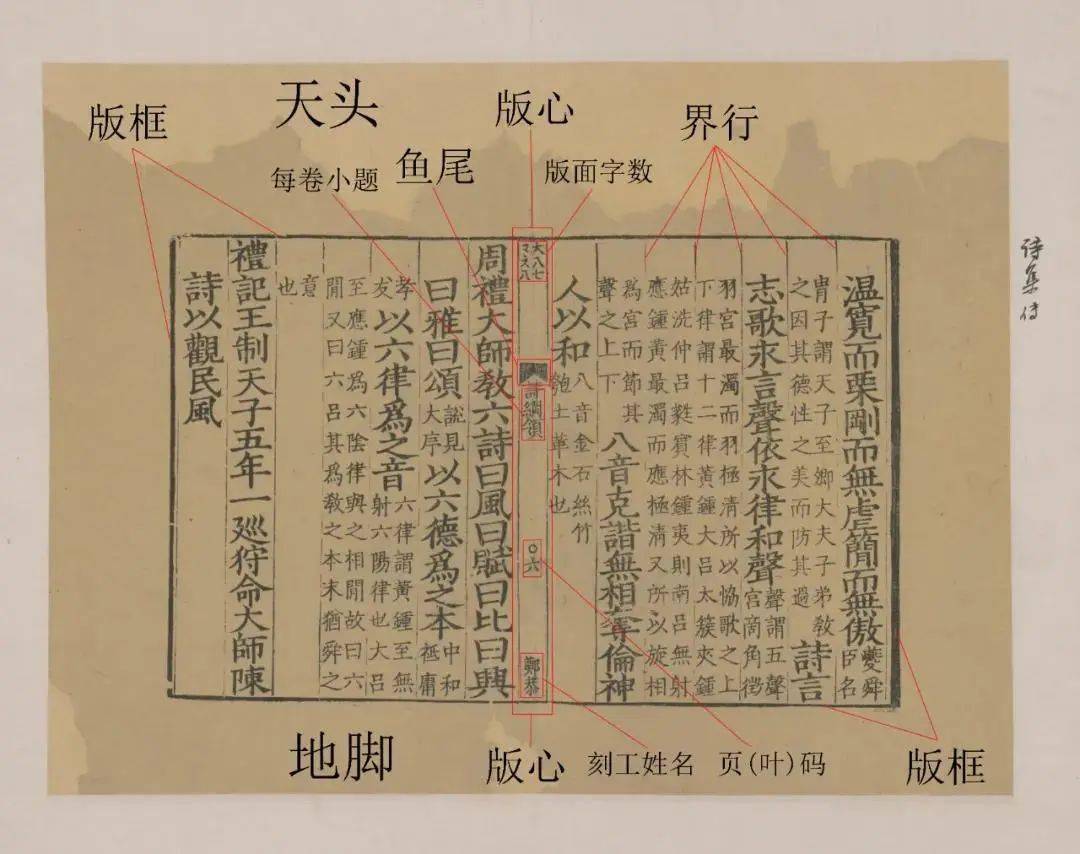 天头
版框
版心
界行
鱼尾
每卷小题
版面字数
詩集傳
温寬而栗剛而無虐簡而無傲夔舜臣名
冑子謂天子至卿大夫子弟教
之因其德性之美而防其過詩言
志歌永言聲依永律和聲聲謂五聲宮商角徵
羽宮最濁而羽極清所以協歌之上
下律謂十二律黃鍾大吕太簇夾鍾
姑洗仲吕蕤賓林鍾夷則南吕無射
應鍾黃最濁而應極清又所以旋相
爲宮而節其
聲之上下八音克諧無相奪倫神
人以和八音金石絲竹匏土革木也
大八七
詩綱領
○六
鄭恭
周禮大師教六詩曰風曰賦曰比曰興
曰雅曰頌說見大序以六德爲之本中和祗庸
孝友以六律爲之音六律謂黃鍾至無射六陽律也大吕
至應鍾爲六陰律與之相間故曰六
間又曰六吕其爲教之本末猶舜之
意也
禮記王制天子五年一廵狩命大師陳
詩以觀民風
地脚
版心
刻工姓名
页(叶)码
版框